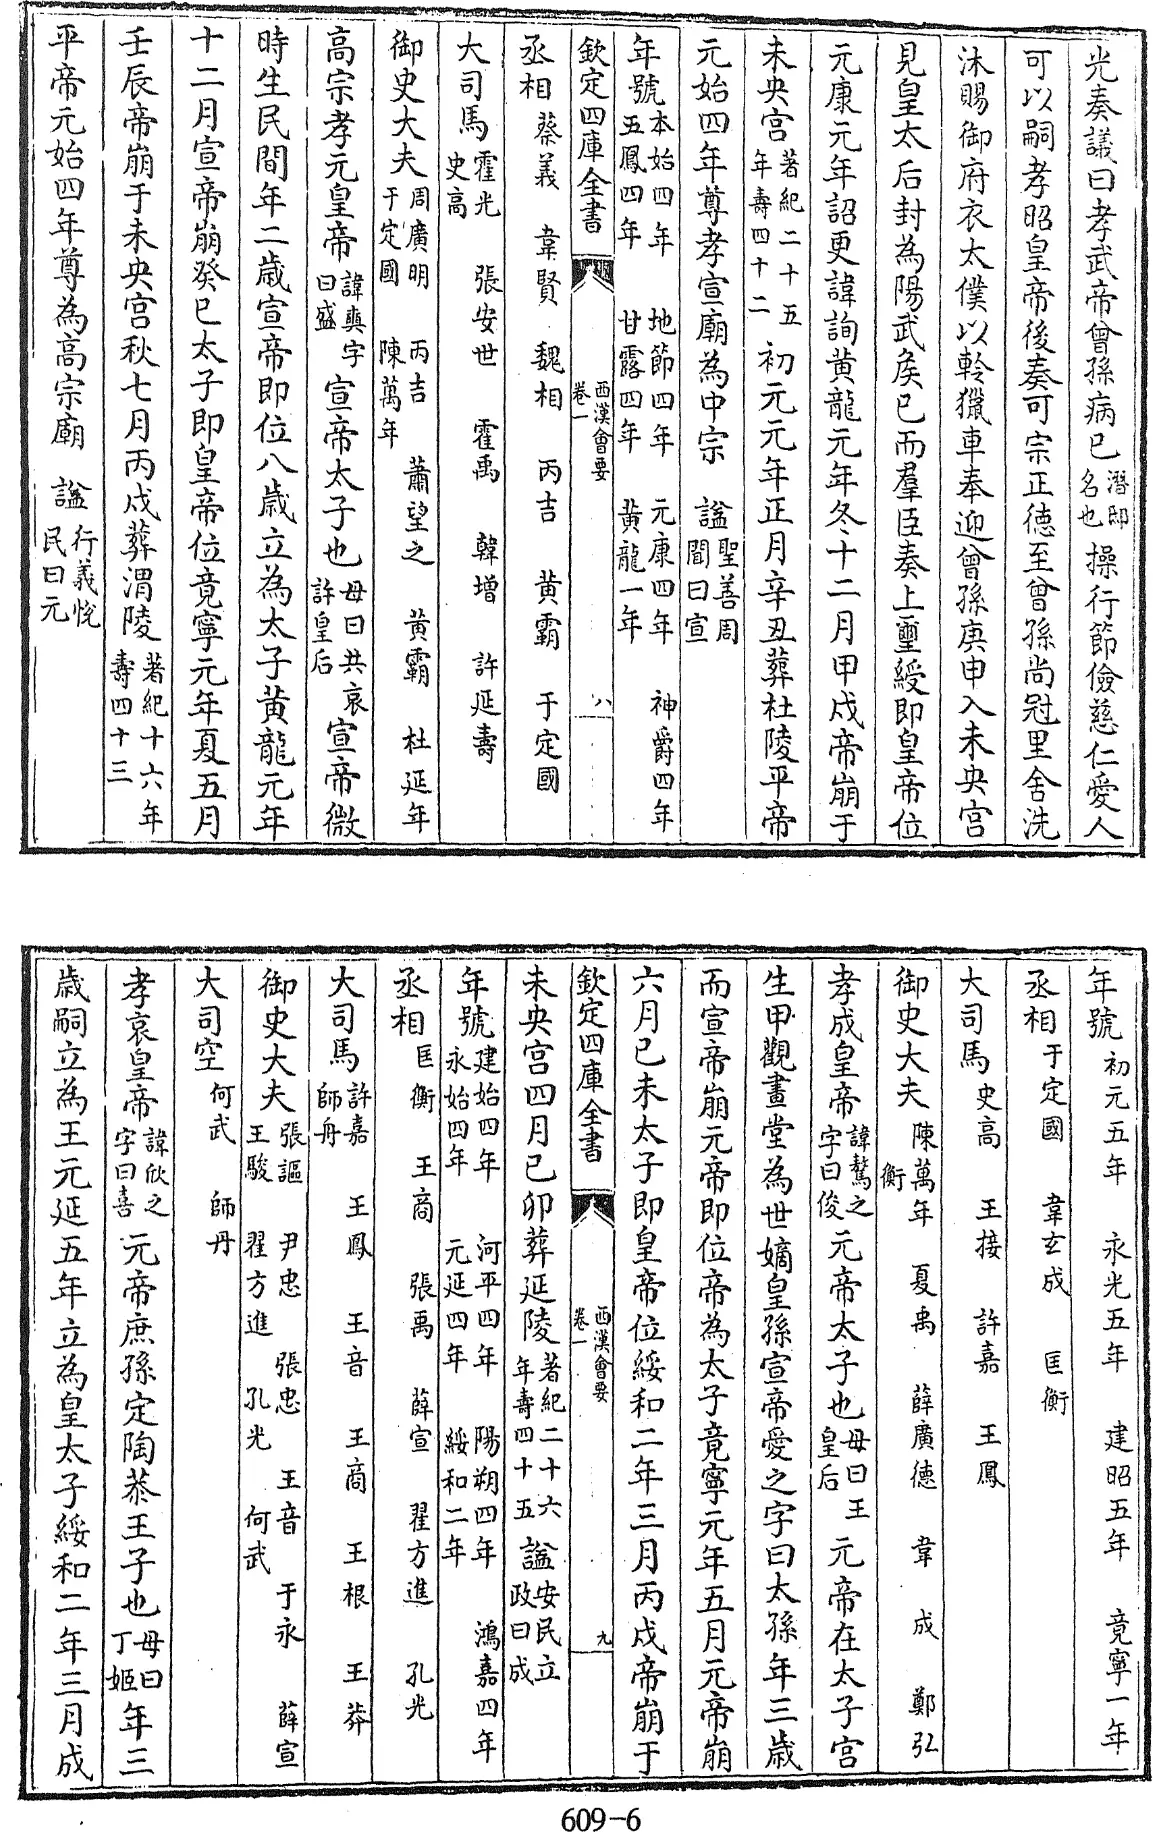 光奏議曰孝武帝曾孫病已潛邸名也操行節儉慈仁愛人
可以嗣孝昭皇帝後奏可宗正德至曾孫尚冠里舍洗
沐賜御府衣太僕以軨獵車奉迎曾孫庚申入未央宮
見皇太后封為陽武矦已而羣臣奏上璽綬即皇帝位
元康元年詔更諱詢黃龍元年冬十二月甲戌帝崩于
未央宮著紀二十五年壽四十二初元元年正月辛丑葬杜陵平帝
元始四年尊孝宣廟為中宗 諡聖善周聞曰宣
年號本始四年 地節四年 元康四年 神爵四年 五鳳四年 甘露四年 黃龍一年
欽定四庫全書 西漢會要卷一 八
丞相 蔡義 韋賢 魏相 丙吉 黃霸 于定國
大司馬霍光 張安世 霍禹 韓增 許延壽 史高
御史大夫周廣明 丙吉 蕭望之 黃霸 杜延年 于定國 陳萬年
高宗孝元皇帝諱奭字曰盛宣帝太子也母曰共哀許皇后宣帝微
時生民間年二歲宣帝即位八歲立為太子黃龍元年
十二月宣帝崩癸巳太子即皇帝位竟寧元年夏五月
壬辰帝崩于未央宮秋七月丙戌葬渭陵著紀十六年壽四十三
平帝元始四年尊為高宗廟 諡行義悅民曰元
年號 初元五年 永光五年 建昭五年 竟寧一年
丞相 于定國 韋玄成 匡衡
大司馬 史高 王接 許嘉 王鳳
御史大夫 陳萬年 夏禹 薛廣德 韋 成 鄭弘 衡
孝成皇帝諱驁之字曰俊元帝太子也母曰王皇后元帝在太子宮
生甲觀畫堂為世嫡皇孫宣帝愛之字曰太孫年三歲
而宣帝崩元帝即位帝為太子竟寧元年五月元帝崩
六月己未太子即皇帝位綏和二年三月丙戌帝崩于
欽定四庫全書 西漢會要卷一 九
未央宮四月己卯葬延陵著紀二十六年壽四十五諡安民立政曰成
年號建始四年 河平四年 陽朔四年 鴻嘉四年 永始四年 元延四年 綏和二年
丞相 匡衡 王商 張禹 薛宣 翟方進 孔光
大司馬許嘉 王鳳 王音 王商 王根 王莽 師丹
御史大夫張譚 尹忠 張忠 王音 于永 薛宣 王駿 翟方進 孔光 何武
大司空 何武 師丹
孝哀皇帝諱欣之字曰喜元帝庶孫定陶恭王子也母曰丁姬年三
歲嗣立為王元延五年立為皇太子綏和二年三月成
609-6